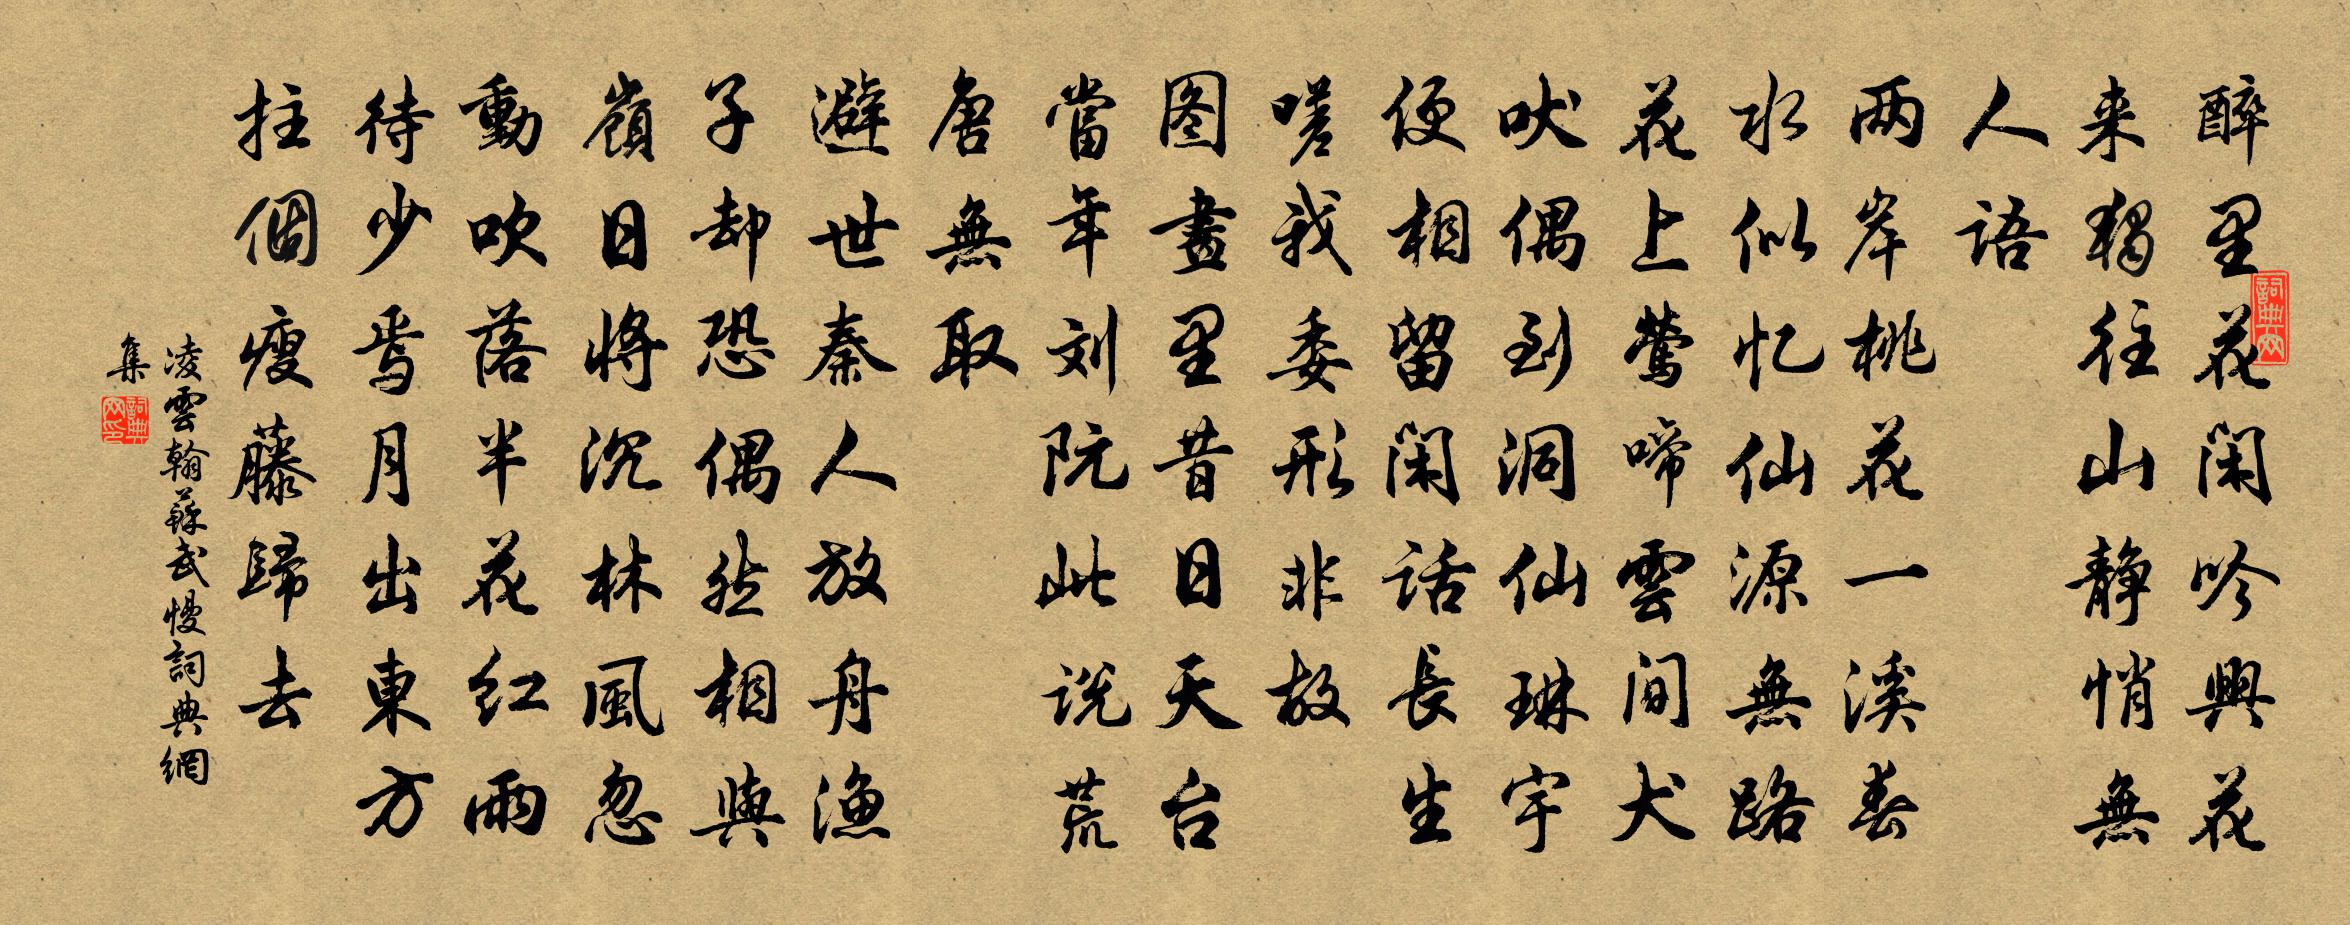 醉里花闲吟興花
来獨往山静悄無
人語
两岸桃花一溪春
水似忆仙源無路
花上鶯啼雲间犬
吠偶到洞仙琳宇
便相留闲话長生
嗟我委形非故
图畫里昔日天台
當年刘阮此说荒
唐無取
避世秦人放舟漁
子却恐偶然相與
嶺日将沉林風忽
動吹落半花红雨
待少焉月出東方
拄個瘦藤歸去
凌雲翰蘇武慢詞典網
集
詞典网
詞典网印